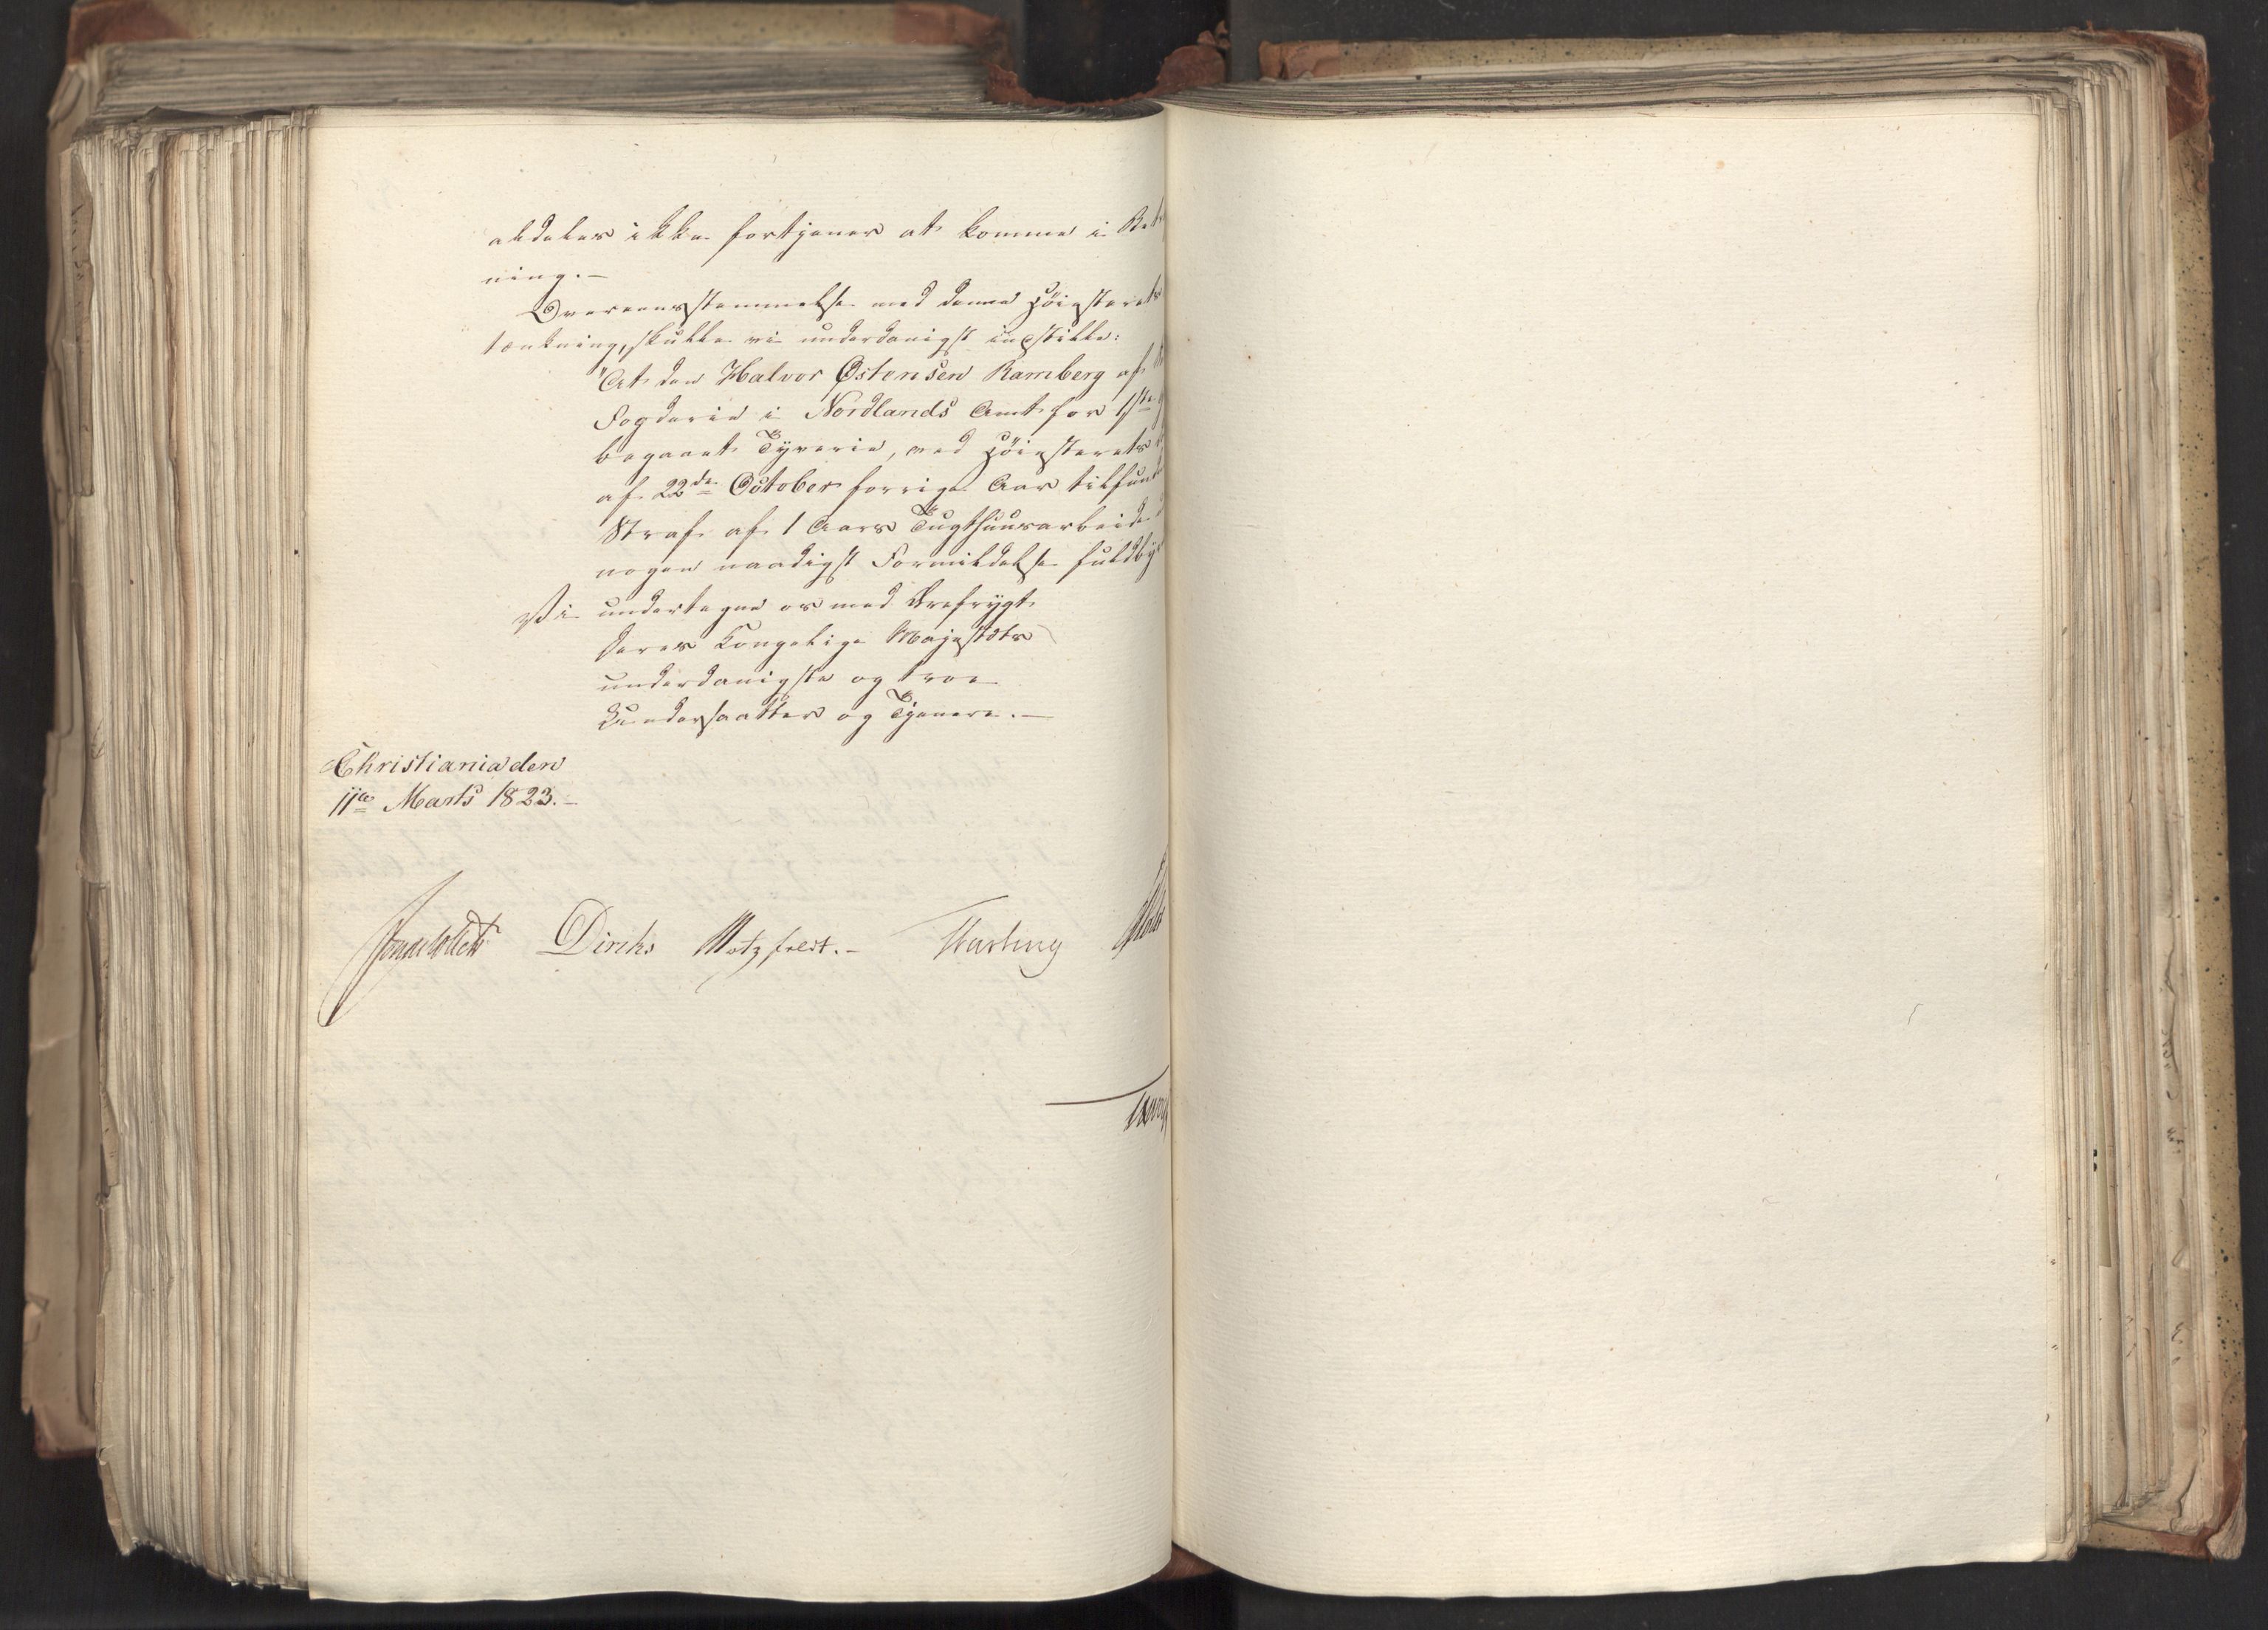 aldeles ikke fortjener at komme i Bet
ning.—
Overeensstemmelse med denne Høiesterets
tænkning, skulle vi underdanigst indstille:
"At den Halvor Østensen Ramberg af
Fogderie i Nordlands Amt for 1ste
begaaet Tyverie, ved Høiesterets
af 22de October forrige Aar tilfund
Straf af 1 Aars Tugthuusarbeide
nogen naadigst Formildelse fuldby
Vi undertegne os med Ærefrygt
Deres Kongelige Majestæts
underdanigste og troe
Undersaatter og Tjenere.—
Christiania den
11te Marts 1823.—
Jonas Collett Diriks Motzfeldt.— Fasting Holst